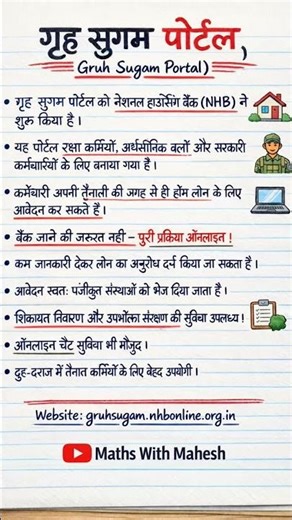 गृह सुगम पोर्टल,
Gruh Sugam Portal)
• गृह सुगम पोर्टल को नेशनल हाउसिंग बैंक (NHB) ने
शुरू किया है।
• यह पोर्टल रक्षा कर्मियों, अर्धसैनिक बलों और सरकारी
कर्मचारियों के लिए बनाया गया है।
• कर्मचारी अपनी तैनाती की जगह से ही होम लोन के लिए
आवेदन कर सकते हैं।
• बैंक जाने की जरुरत नही – पुरी प्रकिया ऑनलाइन!
• कम जानकारी देकर लोन का अनुरोध दर्न किया जा सकता है।
• आवेदन स्वतः पंजीकृत संस्थाओं को भेज दिया जाता है।
• शिकायत निवारण और उपभोक्ता संरक्षण की सुविधा उपलब्ध!
• ऑनलाइन चैट सुविधा भी मौजुद।
• दुह-दराज में तैनात कर्मियों के लिए बेहद उपयोगी।
Website: gruhsugam.nhbonline.org.in
Maths With Mahesh